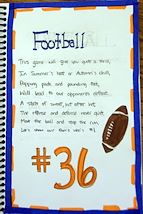 Football
This game will give you quite a thrill,
In Summer's heat or Autumn's chill,
Popping pads and pounding feet,
We'll lead to our opponents defeat.
A state of sweat, but after wet,
The offense and defense never quit,
Move the ball and stop the run,
Let's show our rivals who's #1
#36